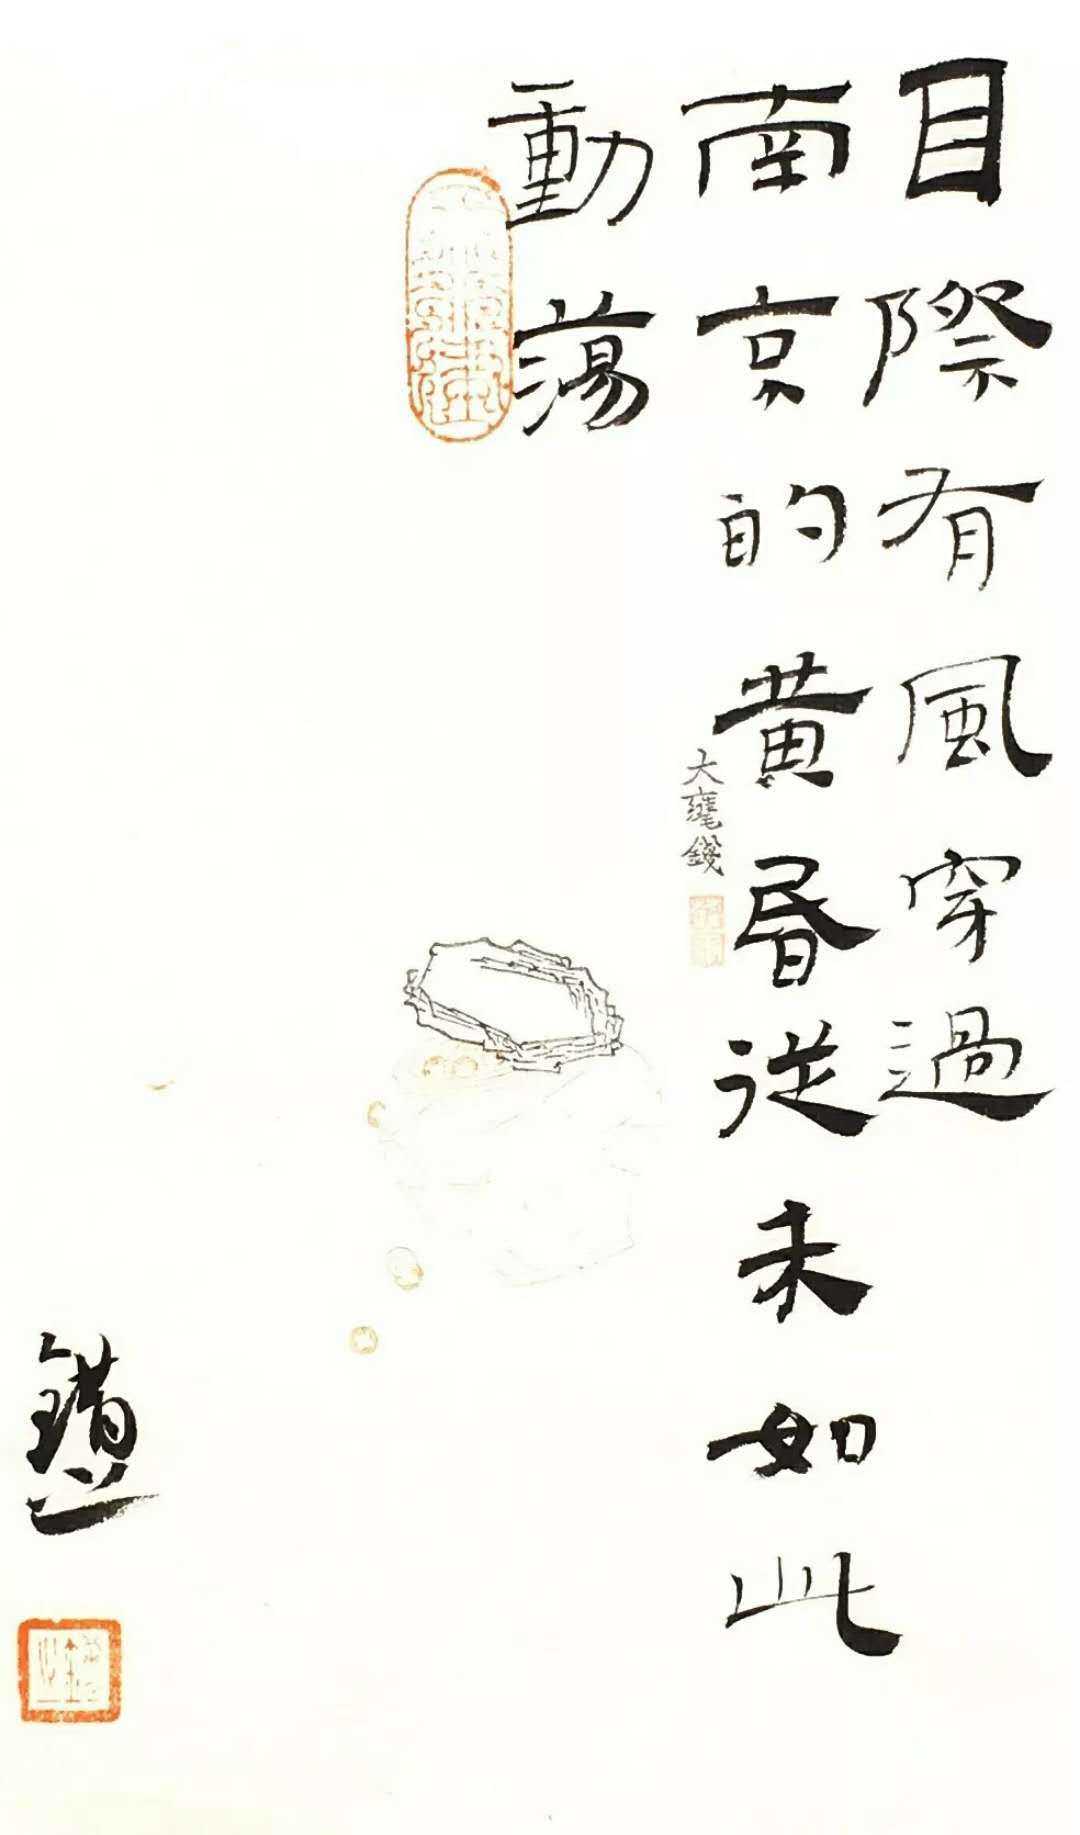 目際有風穿過
南京的黄昏從未如此
動蕩
大
錢
錯之